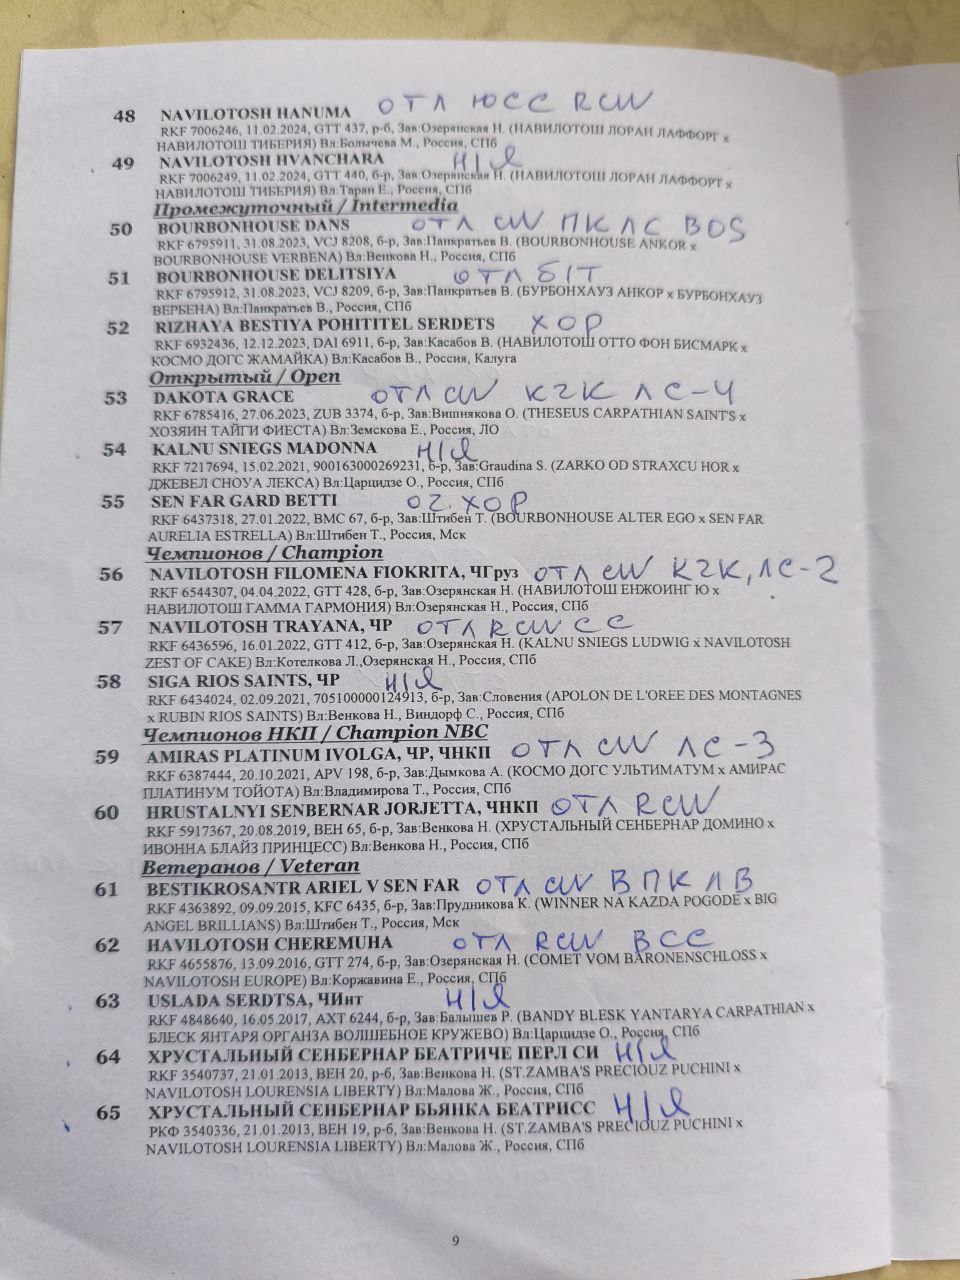 48 NAVILOTOSH HANUMA ОТЛ ЮСС RCW
RKF 7006246, 11.02.2024, GTT 437, р-б, Зав:Озерянская Н. (НАВИЛОТОШ ЛОРАН ЛАФФОРГ x
НАВИЛОТОШ ТИБЕРИЯ) Вл:Болычева М., Россия, СПб
49 NAVILOTOSH HVANCHARA Н/Я
RKF 7006249, 11.02.2024, GTT 440, б-р, Зав:Озерянская Н. (НАВИЛОТОШ ЛОРАН ЛАФФОРГ x
НАВИЛОТОШ ТИБЕРИЯ) Вл:Таран Е., Россия, СПб
Промежуточный / Intermedia
50 BOURBONHOUSE DANS ОТЛ CW ПК ЛС BOS
RKF 6795911, 31.08.2023, VCJ 8208, б-р, Зав:Панкратьев В. (BOURBONHOUSE ANKOR x
BOURBONHOUSE VERBENA) Вл:Венкова Н., Россия, СПб
51 BOURBONHOUSE DELITSIYA ОТЛ Б/Т
RKF 6795912, 31.08.2023, VCJ 8209, б-р, Зав:Панкратьев В. (БУРБОНХАУЗ АНКОР x БУРБОНХАУЗ
ВЕРБЕНА) Вл:Панкратьев В., Россия, СПб
52 RIZHAYA BESTIYA POHITITEL SERDETS ХОР
RKF 6932436, 12.12.2023, DAI 6911, б-р, Зав:Касабов В. (НАВИЛОТОШ ОТТО ФОН БИСМАРК x
КОСМО ДОГС ЖАМАЙКА) Вл:Касабов В., Россия, Калуга
Открытый / Open
53 DAKOTA GRACE ОТЛ CW КЧК ЛС-4
RKF 6785416, 27.06.2023, ZUB 3374, б-р, Зав:Вишнякова О. (THESEUS CARPATHIAN SAINT'S x
ХОЗЯИН ТАЙГИ ФИЕСТА) Вл:Земскова Е., Россия, ЛО
54 KALNU SNIEGS MADONNA Н/Я
RKF 7217694, 15.02.2021, 900163000269231, б-р, Зав:Graudina S. (ZARKO OD STRAXCU HOR x
ДЖЕВЕЛ СНОУА ЛЕКСА) Вл:Царцидзе О., Россия, СПб
55 SEN FAR GARD BETTI ОЧ. ХОР
RKF 6437318, 27.01.2022, BMC 67, б-р, Зав:Штибен Т. (BOURBONHOUSE ALTER EGO x SEN FAR
AURELIA ESTRELLA) Вл:Штибен Т., Россия, Мск
Чемпионов / Champion
56 NAVILOTOSH FILOMENA FIOKRITA, ЧГруз ОТЛ CW КЧК, ЛС-2
RKF 6544307, 04.04.2022, GTT 428, б-р, Зав:Озерянская Н. (НАВИЛОТОШ ЕНЖОИНГ Ю x
НАВИЛОТОШ ГАММА ГАРМОНИЯ) Вл:Озерянская Н., Россия, СПб
57 NAVILOTOSH TRAYANA, ЧР ОТЛ RCW СС
RKF 6436596, 16.01.2022, GTT 412, б-р, Зав:Озерянская Н. (KALNU SNIEGS LUDWIG x NAVILOTOSH
ZEST OF CAKE) Вл:Котелкова Л.,Озерянская Н., Россия, СПб
58 SIGA RIOS SAINTS, ЧР Н/Я
RKF 6434024, 02.09.2021, 705100000124913, б-р, Зав:Словения (APOLON DE L'OREE DES MONTAGNES
x RUBIN RIOS SAINTS) Вл:Венкова Н., Виндорф С., Россия, СПб
Чемпионов НКП / Champion NBC
59 AMIRAS PLATINUM IVOLGA, ЧР, ЧНКП ОТЛ CW ЛС-3
RKF 6387444, 20.10.2021, APV 198, б-р, Зав:Дымкова А. (КОСМО ДОГС УЛЬТИМАТУМ x АМИРАС
ПЛАТИНУМ ТОЙОТА) Вл:Владимирова Т., Россия, СПб
60 HRUSTALNYI SENBERNAR JORJETTA, ЧНКП ОТЛ RCW
RKF 5917367, 20.08.2019, BEH 65, б-р, Зав:Венкова Н. (ХРУСТАЛЬНЫЙ СЕНБЕРНАР ДОМИНО x
ИВОННА БЛАЙЗ ПРИНЦЕСС) Вл:Венкова Н., Россия, СПб
Ветеранов / Veteran
61 BESTIKROSANTR ARIEL V SEN FAR ОТЛ CW ВПК ЛВ
RKF 4363892, 09.09.2015, KFC 6435, б-р, Зав:Прудникова К. (WINNER NA KAZDA POGODE x BIG
ANGEL BRILLIANS) Вл:Штибен Т., Россия, Мск
62 HAVILOTOSH CHEREMUHA ОТЛ RCW ВСС
RKF 4655876, 13.09.2016, GTT 274, б-р, Зав:Озерянская Н. (COMET VOM BARONENSCHLOSS x
NAVILOTOSH EUROPE) Вл:Коржавина Е., Россия, СПб
63 USLADA SERDTSA, ЧИнт Н/Я
RKF 4848640, 16.05.2017, AXT 6244, б-р, Зав:Балышев Р. (BANDY BLESK YANTARYA CARPATHIAN x
БЛЕСК ЯНТАРЯ ОРГАНЗА ВОЛШЕБНОЕ КРУЖЕВО) Вл:Царцидзе О., Россия, СПб
64 ХРУСТАЛЬНЫЙ СЕНБЕРНАР БЕАТРИЧЕ ПЕРЛ СИ Н/Я
RKF 3540737, 21.01.2013, BEH 20, р-б, Зав:Венкова Н. (ST.ZAMBA'S PRECIOUZ PUCHINI x
NAVILOTOSH LOURENSIA LIBERTY) Вл:Малова Ж., Россия, СПб
65 ХРУСТАЛЬНЫЙ СЕНБЕРНАР БЬЯНКА БЕАТРИСС Н/Я
РКФ 3540336, 21.01.2013, BEH 19, р-б, Зав:Венкова Н. (ST.ZAMBA'S PRECIOUZ PUCHINI x
NAVILOTOSH LOURENSIA LIBERTY) Вл:Малова Ж., Россия, СПб
9